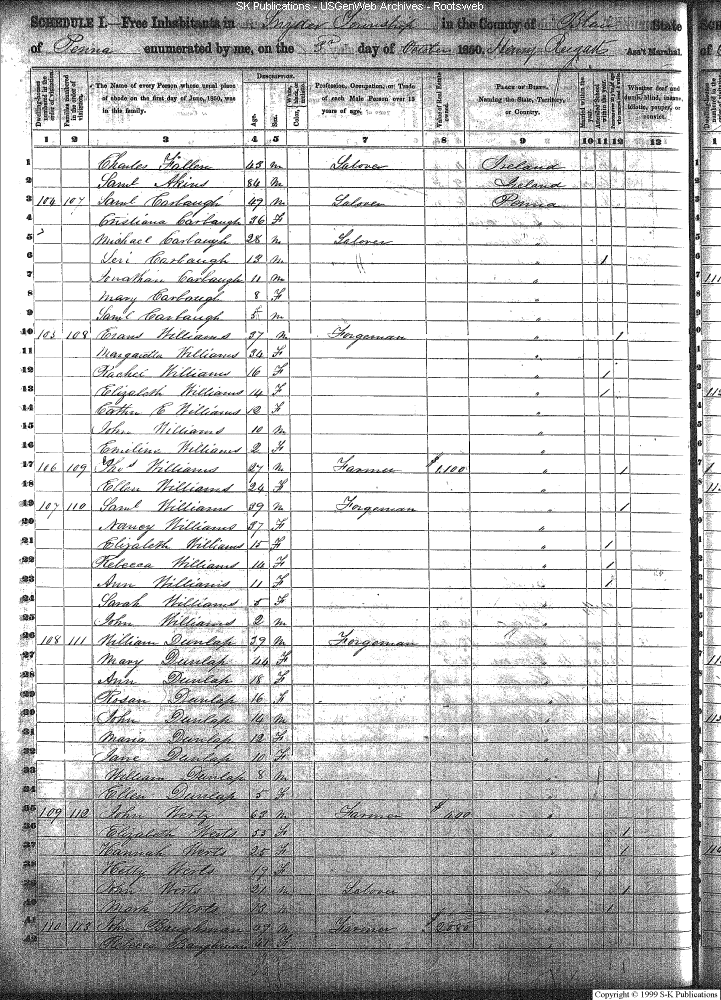 SK Publications - USGenWeb Archives - Rootsweb
SCHEDULE I.—Free Inhabitants in Snyder Township in the County of Blair State
of Penna enumerated by me, on the day of October 1850. Henry Ass't Marshal.
Dwelling-houses numbered in the order of visitation.
Families numbered in the order of visitation.
The Name of every Person whose usual place of abode on the first day of June, 1850, was in this family.
Description.
Age.
Sex.
Color, White, black, or mulatto.
Profession, Occupation, or Trade of each Male Person over 15 years of age.
Value of Real Estate owned.
Place of Birth. Naming the State, Territory, or Country.
Married within the year.
Attended School within the year.
Whether deaf and dumb, blind, insane, idiotic, pauper, or convict.
1 2 3 4 5 6 7 8 9 10 11 12 13
1 Charles Fallen 43 M Labover Ireland
2 Saml Akins 84 M Ireland
3 104 107 Saml Carbaugh 47 M Labover Penna
4 Cristiana Carbaugh 36 F "
5 Michael Carbaugh 28 M Labover "
6 Levi Carbaugh 13 M " 1
7 Jonathan Carbaugh 11 M "
8 Mary Carbaugh 8 F "
9 Saml Carbaugh 5 M "
10 105 108 Evans Williams 37 M Forgeman " 1
11 Margaretta Williams 34 F "
12 Rachel Williams 16 F " 1
13 Elizabeth Williams 14 F " 1
14 Cathn E Williams 12 F "
15 John Williams 10 M "
16 Emeline Williams 2 F "
17 106 109 Thos Williams 27 M Farmer $1,100 " 1
18 Ellen Williams 24 F "
19 107 110 Saml Williams 39 M Forgeman " 1
20 Nancy Williams 37 F "
21 Elizabeth Williams 15 F " 1
22 Rebecca Williams 14 F " 1
23 Ann Williams 11 F " 1
24 Sarah Williams 5 F "
25 John Williams 2 M "
26 108 111 William Dunlap 39 M Forgeman "
27 Mary Dunlap 44 F "
28 Ann Dunlap 18 F "
29 Rosan Dunlap 16 F "
30 John Dunlap 14 M "
31 Maria Dunlap 12 F "
32 Jane Dunlap 10 F "
33 William Dunlap 8 M "
34 Ellen Dunlap 5 F "
35 109 112 John Werts 63 M Farmer "
36 Elizabeth Werts 55 F " 1
37 Hannah Werts 25 F " 1
38 Hetty Werts 19 F "
39 John Werts 21 M Labover " 1
40 Mark Werts M "
41 110 113 Baughman M Farmer "
42 Rebecca Baughman F "
Copyright © 1999 S-K Publications